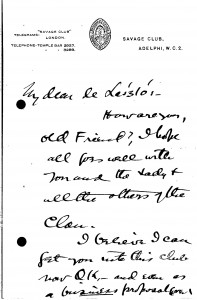 TELEGRAMS:- "SAVAGE CLUB"
LONDON.
TELEPHONE-TEMPLE BAR
SAVAGE CLUB,
ADELPHI, W.C.2.
My dear de László:-
How are you,
old Friend? I hope
all goes well with
you and the Lady &
all the others of the
Clan.
I believe I can
get you into this Club
now O.K.- and even as
a business proposal you